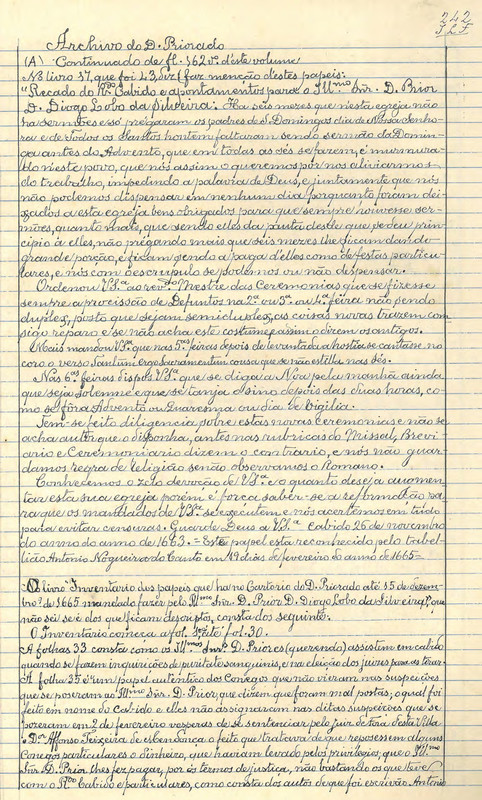 242
Archivo do D. Priorado
(A) Continuado de fl. 362 vº d'este volume
No livro 17, que foi 43, [...] faz menção destes papeis:
"Recado do Rdo Cabido e apontamentos para o Illmo Snr. D. Prior
D. Diogo Lobo da Silveira: Ha seis mezes que n'esta egreja não
ha sermões e só prégaram os padres de S. Domingos dia de Nossa Senho-
ra e de Todos os Santos hontem faltaram sendo sermão da Domin-
ga antes do Advento, que em todas as sés se fazem, e murmura-
do n'este povo, que nós assim o queremos por nos aliviarmos
do trabalho, impedindo a palavra de Deus, e juntamente que nós
não podemos dispensar em nenhum dia porquanto foram dei-
xados a esta egreja bens obrigados para que sempre houvesse ser-
mões, quanto mais, que sendo elles da pauta desde que se deu prin-
cipio a elles, não prégando mais que seis mezes lhe ficam dando
grande porção, e ficam sendo a paga d'elles como de festas particu-
lares, e nós com o escrupulo se podemos ou não dispensar.
Ordenou V.S.ª ao revdo Mestre das Ceremonias que se fizesse
sempre a procissão de Defuntos na 2ª ou 3ª ou 4ª feira não sendo
duplex, posto que sejam semiduplex, as coisas novas trazem com-
sigo reparo e se não acha este costume e assim o dizem os antigos.
Mais mandou V.S.ª que nas 5as feiras depois de levantada a hostia se cantasse no
coro o verso Tantum ergo Sacramentum cousa que se não estilla nas sés.
Nas 6as feiras dispoz V.S.ª que se diga a Noa pela manhã ainda
que seja solemne e que se tanja o sino depois das duas horas, co-
mo se fôra Advento ou Quaresma ou dia de Vigilia.
Tem-se feito diligencia sobre estas novas ceremonias e não se
acha autor que o disponha, antes nas rubricas do Missal, Brevi-
ario e Ceremoniario dizem o contrario, e nós não guar-
damos regra de religião senão observamos o Romano.
Conhecemos o zelo devoção de V.S.ª e o quanto deseja augmen-
tar esta sua egreja porém é força saber-se a reformação pa-
ra que os mandados de V.S.ª se executem e nós acertemos em tudo
para evitar censuras. Guarde Deus a V.S.ª Cabido 26 de novembro
do anno do anno de 1663. = Este papel está reconhecido pelo tabel-
lião Antonio Nogueira do Canto em 19 dias de fevereiro do anno de 1665 =
O livro "Inventario dos papeis que ha no Cartorio do D. Priorado até 15 de dezem-
bro de 1665 mandado fazer pelo Illmo Snr. D. Prior D. Diogo Lobo da Silveira", que
não sei se é dos que ficam descriptos, consta do seguinte:
O Inventario começa a fol. 1ª e foi até fol. 30.
A folhas 33 consta como os Illmos Snrs D. Priores (querendo) assistem em cabido
quando se fazem inquirições de puritate sanguinis, e na eleição dos juizes para as tirar.
A folha 35 é "um papel autentico dos Conegos que não vieram nas suspeições
que se poseram ao Illmo Snr. D. Prior, que dizem que foram mal postas, o qual foi
feito em nome do Cabido e elles não assignaram nas ditas suspeições que se
pozeram em 2 de fevereiro vesporas de se sentenciar pelo juiz de fóra desta Villa
o Dr. Affonso Teixeira de Mendonça o feito que tratava de que repozessem alguns
Conegos particulares o dinheiro, que haviam levado pelos privilegios, que o Illmo
Snr. D. Prior lhes fez pagar, por os termos de justiça, não bastando os que teve
com o Rdo Cabido e particulares, como consta dos autos de que foi escrivão Antonio